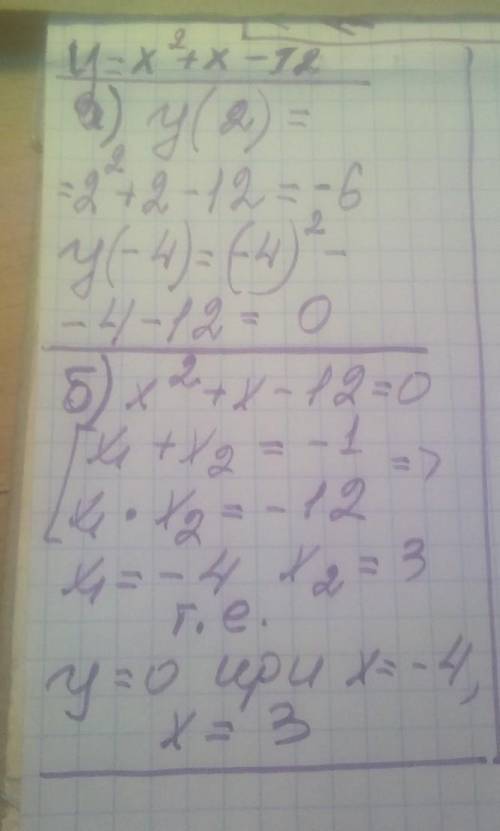 y = x² + x - 12
а) y(2) =
= 2² + 2 - 12 = -6
y(-4) = (-4)² -
- 4 - 12 = 0
б) x² + x - 12 = 0
[ x₁ + x₂ = -1 =>
x₁ · x₂ = -12
x₁ = -4 x₂ = 3
т.е.
y = 0 при x = -4,
x = 3